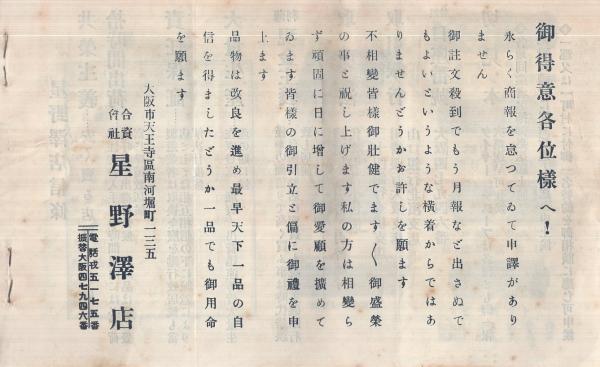 御得意各位樣へ！
永らく商報を怠つてゐて申譯があり
ません
御註文殺到でもう月報など出さぬで
もよいというような橫着からではあ
りませんどうかお許しを願ます
不相變皆樣御壯健でます〱御盛榮
の事と祝し上げます私の方は相變ら
ず頑固に日に增して御愛顧を擴めて
ゐます皆樣の御引立と偏に御禮を申
上ます
品物は改良を進め最早天下一品の自
信を得ましたどうか一品でも御用命
を願ます
大阪市天王寺區南河堀町一三五
合資會社 星野澤店
電話戎五一七五番
振替大阪四七九四六番